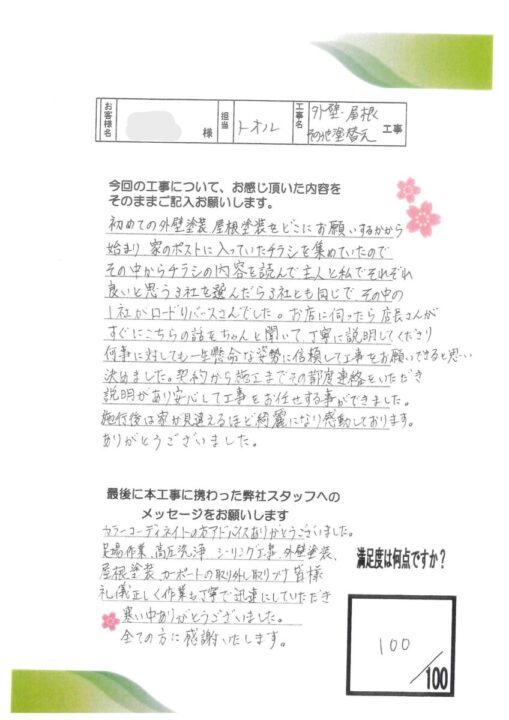 お客様名 様 担当 トオル 工事名 外壁・屋根
塗替え 工事
今回の工事について、お感じ頂いた内容を
そのままご記入お願いします。
初めての外壁塗装 屋根塗装をどこにお願いするかから
始まり 家のポストに入っていたチラシを集めていたので
その中からチラシの内容を読んで主人と私でそれぞれ
良いと思う3社を選んだら3社とも同じで その中の
1社がロードリバースさんでした。お店に伺ったら店長さんが
すぐにこちらの話をちゃんと聞いて、丁寧に説明してくださり
何事に対しても一生懸命な姿勢に信頼して工事をお願いできると思い
決めました。契約から施工までその都度連絡をいただき
説明があり安心して工事をお任せする事ができました。
施行後は家が見違えるほど綺麗になり感動しております。
ありがとうございました。
最後に本工事に携わった弊社スタッフへの
メッセージをお願いします
カラーコーディネイトの方アドバイスありがとうございました。
足場作業、高圧洗浄 シーリング工事、外壁塗装、
屋根塗装 カーポートの取り外し取りつけ 皆様
礼儀正しく作業も丁寧で迅速にしていただき
寒い中ありがとうございました。
全ての方に感謝いたします。
満足度は何点ですか？
100
/100